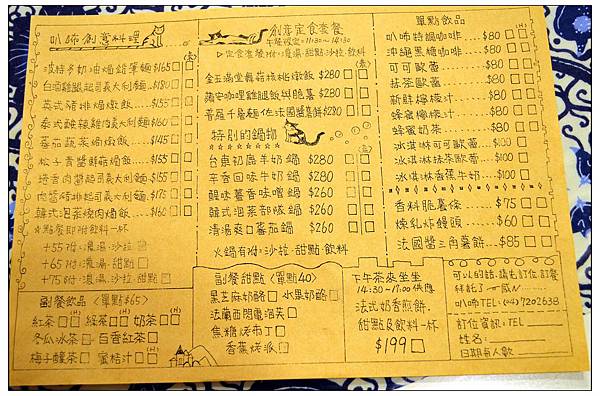 叭咘創意料理
波特多奶油焗鮭菲麵$165
白酒雞腿起司義大利麵$180
英式豬排焗燉飯$155
泰式酸辣雞肉義大利麵$160
番茄蔬菜焗燉飯$145
松子青醬鮮菇焗飯$155
培香肉醬起司義大利麵$155
肉醬豬排起司義大利麵$175
韓式泡菜燒肉燴飯$160
☆點餐附飲料一杯
+55附:濃湯.沙拉
+65附:濃湯.甜點
+75附:濃湯.沙拉.甜點
副餐飲品〈單點$65〉
紅茶 (H) 綠茶 (H) 奶茶 (H)
冬瓜冰茶 百香紅茶
梅子醋茶 蜜桔汁 (H)
創意定食套餐
午餐限定=11:30~14:30
▷定食套餐附:濃湯.甜點.沙拉.飲料
金玉滿堂蘑菇核桃燉飯$280
蘋安咖哩雞腿飯與脆薯$280
普羅千島麵包佐法國醬嘉餅$280
特別的鍋物
台東初鹿羊奶鍋 $280
辛香回味牛奶鍋 $280
鮮味薑香味噌鍋 $260
韓式泡菜部隊鍋 $260
清湯爽口蕃茄鍋 $260
火鍋有附:沙拉.甜點.飲料
副餐甜點〈單點40〉
黑芝麻奶酪 水果奶酪
法蘭西閃電泡芙
焦糖烤布丁
香蕉烤派
單點飲品
叭咘特調咖啡 $80 (H)
沖繩黑糖咖啡 $80
可可歐蕾 $80
抹茶歐蕾 $80
新鮮檸檬汁 $80
蜂蜜檸檬汁 $80
蜂蜜奶茶 $80
冰淇淋可可歐蕾 $100
冰淇淋抹茶歐蕾 $100
冰淇淋香蕉牛奶 $100
香料脆薯條 $75
煉乳炸饅頭 $60
法國醬三角薯餅 $85
下午茶來坐坐
14:30~17:00供應
法式奶香煎餅.
甜點及飲料一杯
$199
可以的話,請先訂位訂餐
拜託了~感ㄟ
叭咘TEL:(04)7202638
訂位資訊:TEL
姓名:
日期有人數